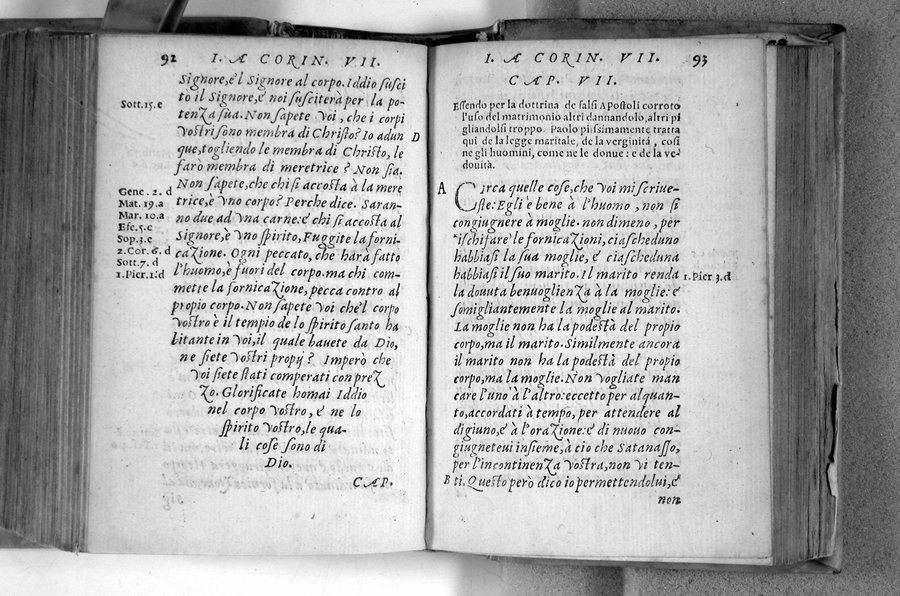 92 I. A CORIN. VII.
Signore, e'l Signore al corpo. Iddio susci
tò il Signore, e noi susciterà per la po-
tenza sua. Non sapete voi, che i corpi
vostri sono membra di Christo? Io adun
que, togliendo le membra di Christo, le
farò membra di meretrice? Non sia.
Non sapete, che chi si accosta à la mere
trice, è vno corpo? Perche dice. Saran-
no due ad vna carne: e chi si accosta al
Signore, è vno spirito, Fuggite la forni-
cazione. Ogni peccato, che harà fatto
l'huomo, è fuori del corpo. ma chi com-
mette la fornicazione, pecca contro al
proprio corpo. Non sapete voi che'l corpo
vostro è il tempio de lo spirito santo ha
bitante in voi, il quale hauete da Dio,
ne siete vostri proprij? Imperò che
voi siete stati comperati con prez
zo. Glorificate homai Iddio
nel corpo vostro, e ne lo
spirito vostro, le qua-
li cose sono di
Dio.
CAP.
Sott. 15. e
D
Gene. 2. d
Mat. 19. a
Mar. 10. a
Efe. 5. e
Sop. 3. e
2. Cor. 6. d
Sott. 7. d
1. Pier. 1. d
I. A CORIN. VII. 93
CAP. VII.
Essendo per la dottrina de falsi Apostoli corroto
l'uso del matrimonio altri dannandolo, altri pi
gliandolsi troppo. Paolo piissimamente tratta
qui de la legge maritale, de la verginità, così
ne gli huomini, come ne le donne: e de la ve-
douità.
A
Circa quelle cose, che voi mi scriue-
ste: Egli è bene à l'huomo, non si
congiugnere à moglie. non dimeno, per
ischifare le fornicazioni, ciascheduno
habbiasi la sua moglie, e ciascheduna
habbiasi il suo marito. Il marito renda
la douuta beniuoglienza à la moglie: e
somigliantemente la moglie al marito.
La moglie non ha la podestà del propio
corpo, ma il marito. Similmente ancora
il marito non ha la podestà del propio
corpo, ma la moglie. Non vogliate man
care l'uno à l'altro: eccetto per alquan-
to, accordati à tempo, per attendere al
digiuno, e à l'orazione: e di nuouo con-
giugneteui insieme, à cio che Satanasso,
per l'incontinenza vostra, non vi ten-
B ti. Questo però dico io permettendolui, e
non
1. Pier 3. d